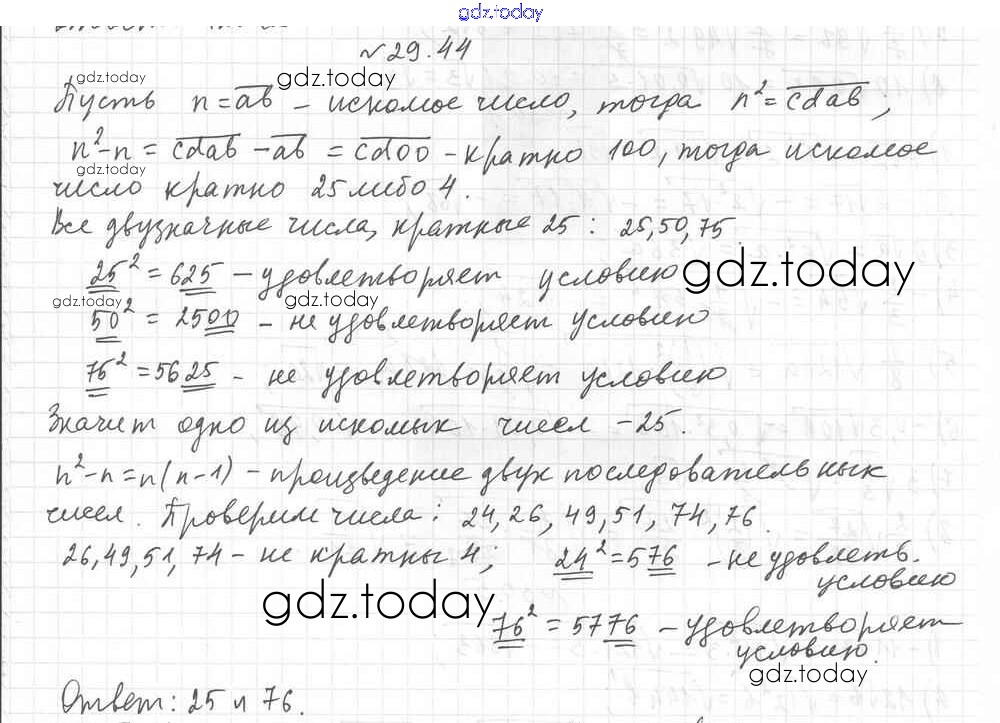 gdz.today
№29.44
gdz.today gdz.today
Пусть n = ab – искомое число, тогда n² = cdab,
n² – n = cdab – ab = cd00 – кратно 100, тогда искомое
gdz.today
число кратно 25 либо 4.
Все двузначные числа, кратные 25 : 25, 50, 75.
25² = 625 – удовлетворяет условию gdz.today
gdz.today gdz.today
50² = 2500 – не удовлетворяет условию
75² = 5625 – не удовлетворяет условию
Значит одно из искомых чисел – 25.
n² – n = n(n – 1) – произведение двух последовательных
чисел. Проверим числа: 24, 26, 49, 51, 74, 76.
26, 49, 51, 74 – не кратны 4; 24² = 576 – не удовлетв.
условию
gdz.today
76² = 5776 – удовлетворяет
условию.
gdz.today
Ответ: 25 и 76.